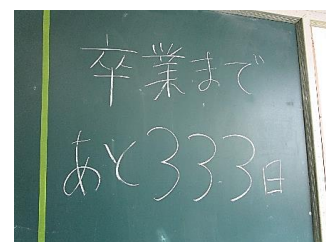 卒業まで
あと333日